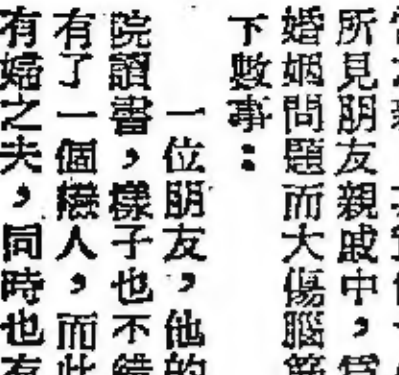 所見朋友親戚中，
婚姻問題而大傷腦
下數事：
一位朋友，他的
院讀書，樣子也不錯
有了一個戀人，而此
有婦之夫，同時也有